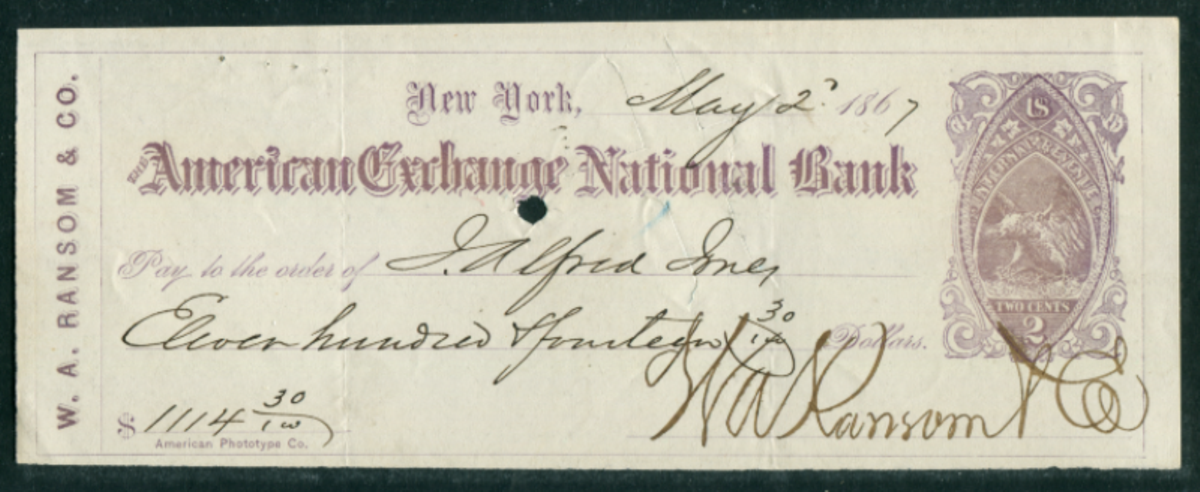 W. A. RANSOM & CO.
New York, May 2 1867
THE American Exchange National Bank
Pay to the order of J. Alfred Jones
Eleven hundred & fourteen 30/100 Dollars.
$ 1114 30/100
W A Ransom & Co
American Phototype Co.
US
INTERNAL REVENUE
TWO CENTS
2